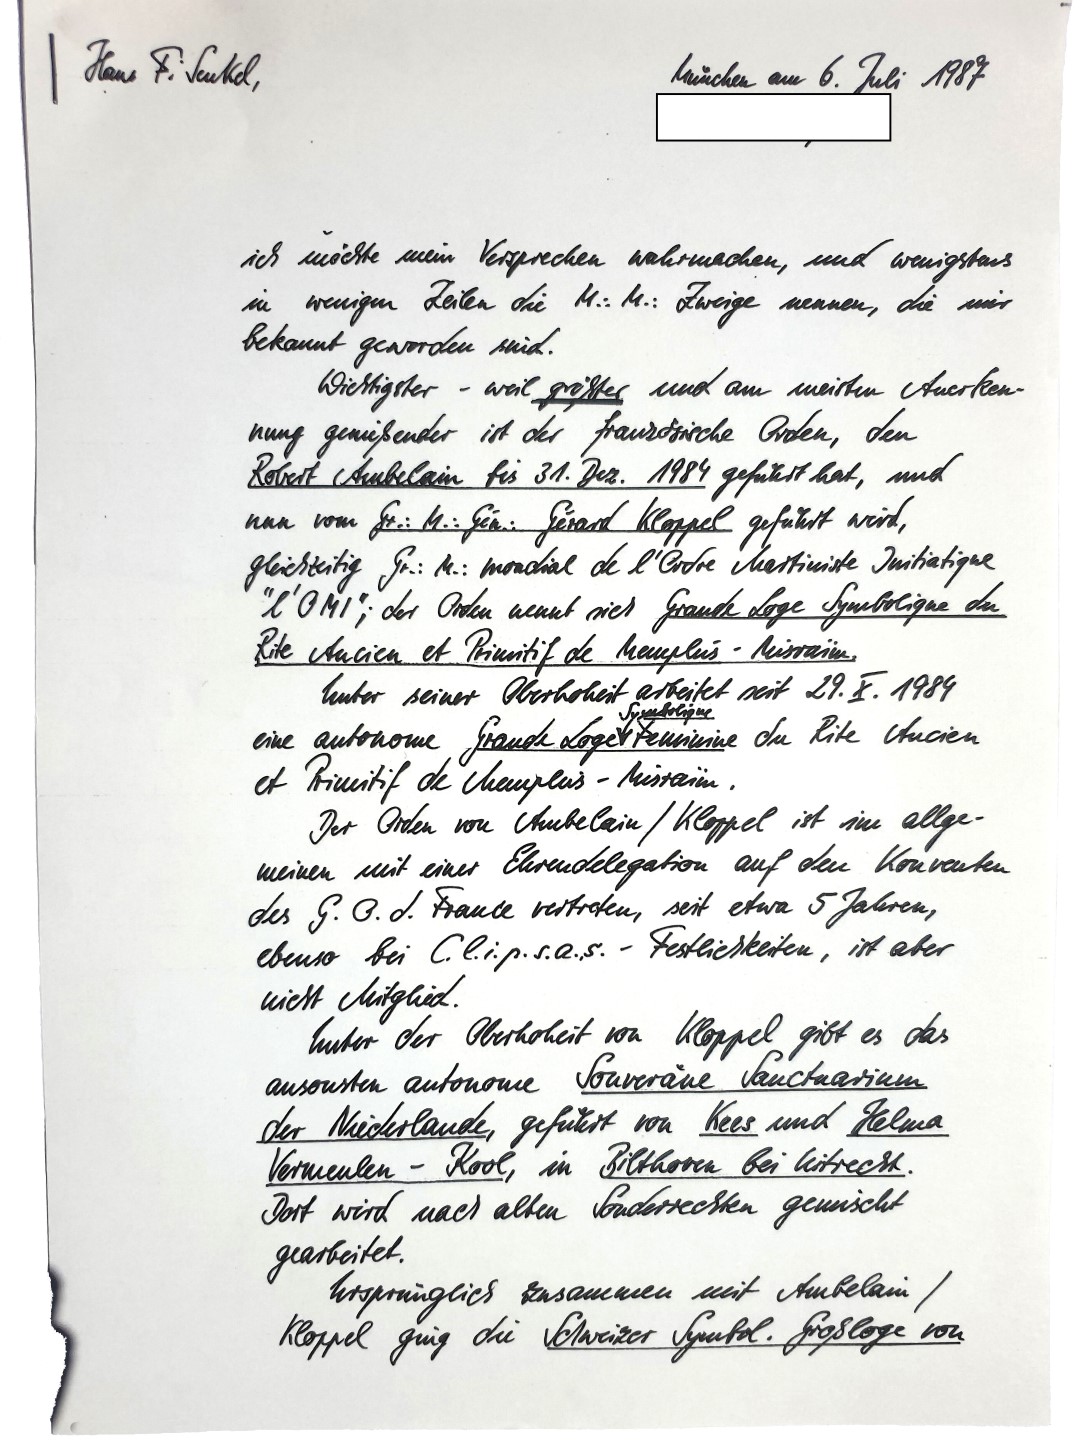 Hans F. Senkel,
München am 6. Juli 1987
ich möchte mein Versprechen wahrmachen, und wenigstens
in wenigen Zeilen die M∴ M∴ Zweige nennen, die mir
bekannt geworden sind.
Wichtigster - weil größter und am meisten Anerken-
nung genießender ist der französische Orden, den
Robert Ambelain bis 31. Dez. 1984 geführt hat, und
nun vom Gr∴ M∴ Gén∴ Gérard Kloppel geführt wird,
gleichzeitig Gr∴ M∴ mondial de l'Ordre Martiniste Initiatique
"l'OMI"; der Orden nennt sich Grande Loge Symbolique du
Rite Ancien et Primitif de Memphis - Misraïm.
Unter seiner Oberhoheit arbeitet seit 29. X. 1984
eine autonome Grande Loge Symbolique Feminine du Rite Ancien
et Primitif de Memphis - Misraïm.
Der Orden von Ambelain / Kloppel ist im allge-
meinen mit einer Ehrendelegation auf den Konventen
des G. O. d. France vertreten, seit etwa 5 Jahren,
ebenso bei C.l.i.p.s.a.s. - Festlichkeiten, ist aber
nicht Mitglied.
Unter der Oberhoheit von Kloppel gibt es das
ansonsten autonome Souveräne Sanctuarium
der Niederlande, geführt von Kees und Helma
Vermeulen - Kool, in Bilthoven bei Utrecht.
Dort wird nach alten Sonderrechten gemischt
gearbeitet.
Ursprünglich zusammen mit Ambelain /
Kloppel ging die Schweizer Symbol. Großloge von